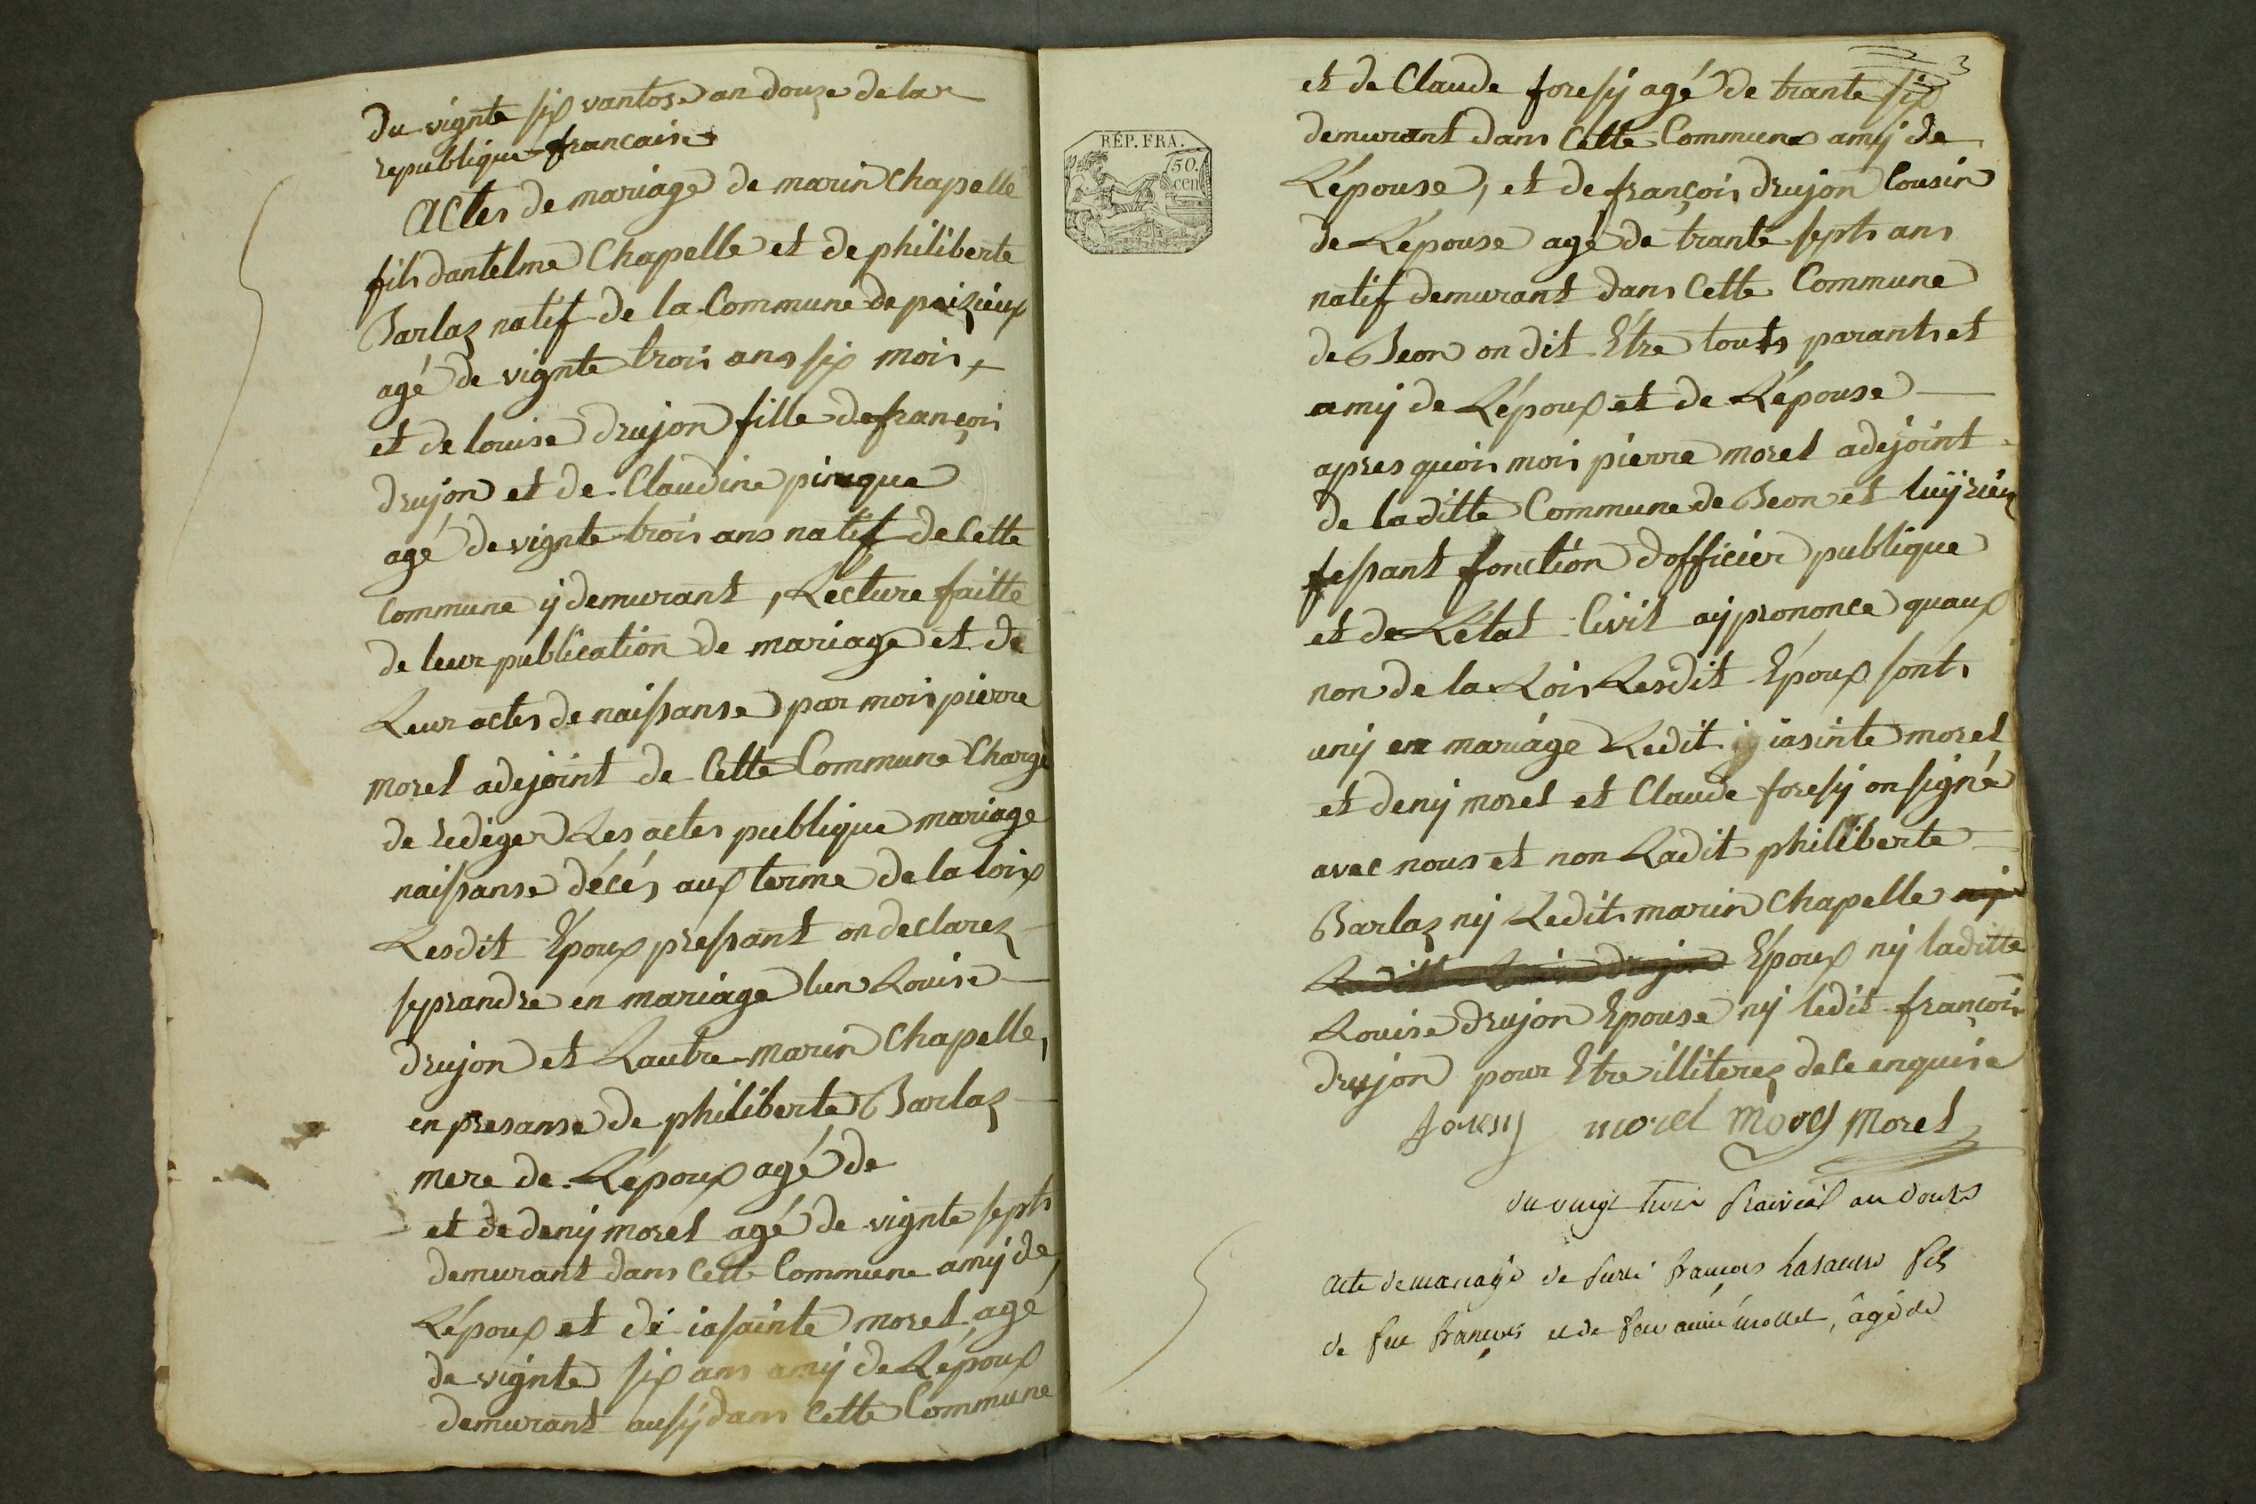 du vignte six vantose an douze de la
republique francaise
Actes de mariage de marin chapelle
fils dantelme Chapelle et de philiberte
Barlaz natif de la Commune de peizieux
agé de vignte trois ans six mois
et de louise drujon fille de françois
drujon et de Claudine pinague
agé de vignte trois ans natif de Cette
Commune ÿ demurant, Lecture faitte
de leur publication de mariage et de
Leur actes de naissanse par mois pierre
morel adejoint de Cette Commune Chargé
de rediger Les actes publique mariage
naissanse décés aux terme de la loix
Lesdit Époux pressant on declarez
se prandre en mariage lun Louise
drujon et Lautre marin Chapelle,
en presanse de philiberte Barlaz
mere de Lépoux agé de
et de denÿ morel agé de vignte septs
demurant dans Cette Commune amÿ de
Lépoux et de iasainte morel agé
de vignte six ans amÿ de Lépoux
demurant aussÿ dans Cette Commune
3
et de Claude foresÿ agé de trante six
demurant dans Cette Commune amÿ de
Lépouse, et de françois drujon Cousin
de Lépouse agé de trante septs ans
natif demurant dans Cette Commune
de Beon on dit Être touts parants et
amÿ de Lépoux et de Lépouse
apres quois mois pierre morel adejoint
de laditte Commune de Beon et luÿrieu
fessant fonction dofficier publique
et de Létat Civil aÿ prononce quaux
non de la Lois Lesdit Époux sonts
unÿ en mariage Ledit iasinte morel
et denÿ morel et Claude foresÿ on signé
avec nous et non Ladit philiberte
Barlaz nÿ Ledit marin Chapelle nÿ
Laditte Louise drujon Époux nÿ laditte
Louise drujon Epouse nÿ ledit françois
drujon pour Être illiterez de Ce enquise
foresÿ morel morel morel
RÉP. FRA.
50.
cen
du vingt trois prairial an douze
acte de mariage de françois fils
de feu françois et de feu mollet, âgé de